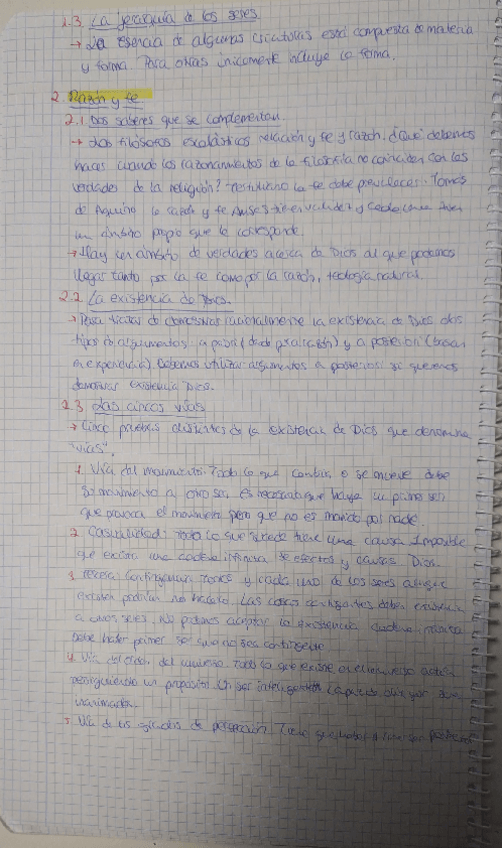 1.3. La jerarquía de los seres.
→ La esencia de algunas criaturas está compuesta de materia
y forma. Para otras únicamente incluye la forma.
2. Razón y fe
2.1 Dos saberes que se complementan.
→ Los filósofos escolásticos relación y fe y razón. ¿Qué debemos
hacer cuando los razonamientos de la filosofía no coinciden con las
verdades de la religión? Tertuliano la fe debe prevalecer. Tomás
de Aquino la razón y fe y cada una
un ámbito propio que le corresponde.
→ Hay un ámbito de verdades acerca de Dios al que podemos
llegar tanto por la fe como por la razón, teología natural.
2.2 La existencia de Dios.
→ Para tratar de demostrar racionalmente la existencia de Dios dos
tipos de argumentos: a priori ( ) y a posteriori (basan
en experiencia). Debemos utilizar argumentos a posteriori si queremos
demostrar existencia Dios.
2.3 Las cincos vías
→ Cinco pruebas distintas de la existencia de Dios que denomina
"vías".
1. Vía del movimiento. Todo lo que cambia o se mueve debe
su movimiento a otro ser, es necesario que haya un primer ser
que provoca el movimiento pero que no es movido por nadie.
2. Casualidad: Todo lo que sucede tiene una causa. Imposible
que exista una cadena infinita de efectos y causas Dios.
3. Tercera. Contingencia: Todos y cada uno de los seres aunque
existen podrían no hacerlo. Las cosas contingentes deben existencia
a otros seres. No podemos aceptar la existencia cadena
debe haber primer ser que no sea contingente.
4. Vía del orden del universo. Todo lo que existe en el universo actúa
persiguiendo un propósito. Un ser inteligente
inanimados.
5. Vía de los grados de perfección.